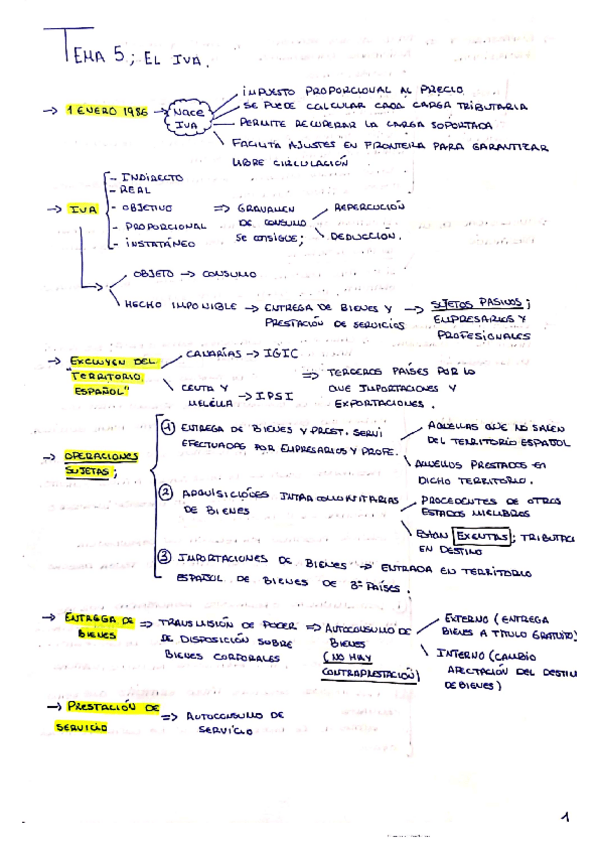 TEMA 5; EL IVA.
→ 1 ENERO 1986 → Nace IVA
IMPUESTO PROPORCIONAL AL PRECIO
SE PUEDE CALCULAR CADA CARGA TRIBUTARIA
PERMITE RECUPERAR LA CARGA SOPORTADA
FACILITA AJUSTES EN FRONTERA PARA GARANTIZAR
LIBRE CIRCULACIÓN
→ IVA
- INDIRECTO
- REAL
- OBJETIVO
- PROPORCIONAL
- INSTATÁNEO
⇒ GRAVAMEN
DE CONSUMO
SE CONSIGUE;
REPERCUCIÓN
DEDUCCIÓN.
OBJETO → CONSUMO
HECHO IMPONIBLE → ENTREGA DE BIENES Y
PRESTACIÓN DE SERVICIOS
→ SUJETOS PASIVOS;
EMPRESARIOS Y
PROFESIONALES
→ EXCLUYEN DEL
"TERRITORIO
ESPAÑOL"
CANARÍAS → IGIC
CEUTA Y
MELILLA → IPSI
⇒ TERCEROS PAÍSES POR LO
QUE IMPORTACIONES Y
EXPORTACIONES.
→ OPERACIONES
SUJETAS;
① ENTREGA DE BIENES Y PREST. SERVI
EFECTUADAS POR EMPRESARIOS Y PROFE.
AQUELLAS QUE NO SALEN
DEL TERRITORIO ESPAÑOL
AQUELLOS PRESTADOS EN
DICHO TERRITORIO.
② ADQUISICIÓNES INTRACOMUNITARIAS
DE BIENES
PROCEDENTES DE OTROS
ESTADOS MIEMBROS
ESTÁN EXENTAS; TRIBUTACI
EN DESTINO
③ IMPORTACIONES DE BIENES → ENTRADA EN TERRITORIO
ESPAÑOL DE BIENES DE 3º PAÍSES.
→ ENTREGA DE
BIENES
⇒ TRANSMISIÓN DE PODER
DE DISPOSICIÓN SOBRE
BIENES CORPORALES
⇒ AUTOCONSUMO DE
BIENES
(NO HAY
CONTRAPRESTACIÓN)
EXTERNO (ENTREGA
BIENES A TÍTULO GRATUITO)
INTERNO (CAMBIO
AFECTACIÓN DEL DESTIN
DE BIENES)
→ PRESTACIÓN DE
SERVICIO
⇒ AUTOCONSUMO DE
SERVICIO
1